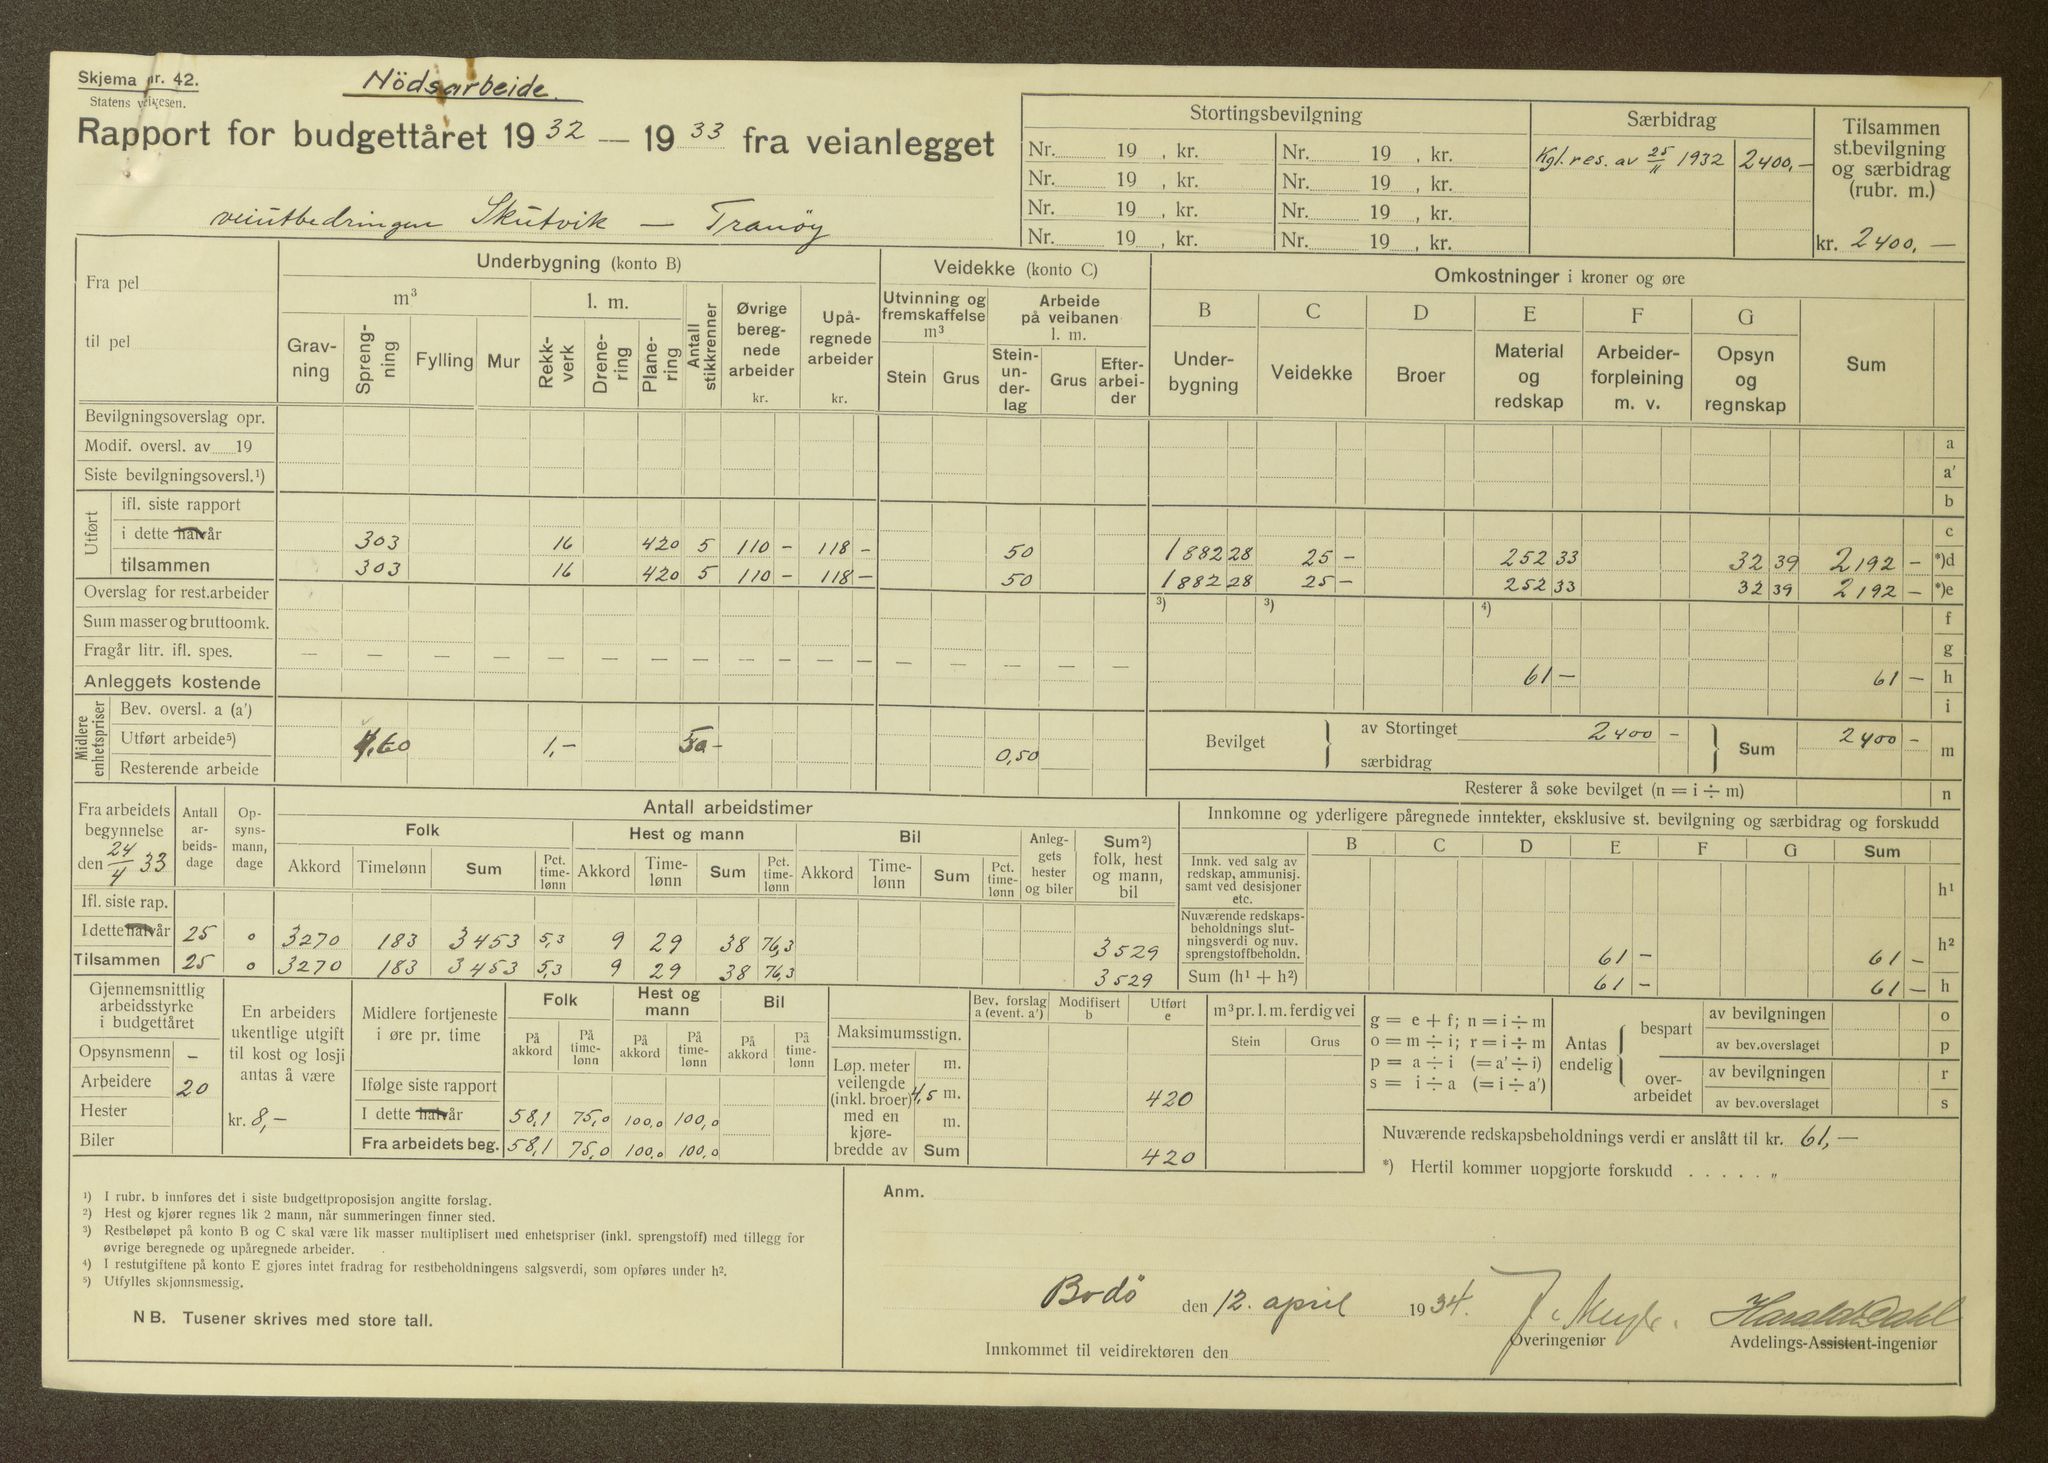 Skjema nr. 42.
Statens veivesen.
Nödsarbeide.
Rapport for budgettåret 19 32 — 19 33 fra veianlegget
veiutbedringen Skutvik — Tranöy
Stortingsbevilgning
Nr. 19 , kr. Nr. 19 , kr.
Nr. 19 , kr. Nr. 19 , kr.
Nr. 19 , kr. Nr. 19 , kr.
Nr. 19 , kr. Nr. 19 , kr.
Særbidrag
Kgl. res. av 25/11 1932 2400,-
Tilsammen
st.bevilgning
og særbidrag
(rubr. m.)
kr. 2400,—
Fra pel
til pel
Underbygning (konto B)
m³ l. m.
Gravning Sprengning Fylling Mur Rekkverk Drenering Planering Antall stikkrenner
Øvrige beregnede arbeider kr.
Upåregnede arbeider kr.
Veidekke (konto C)
Utvinning og fremskaffelse m³
Stein Grus
Arbeide på veibanen l. m.
Steinunderlag Grus Efterarbeider
Omkostninger i kroner og øre
B C D E F G
Underbygning Veidekke Broer Material og redskap Arbeiderforpleining m. v. Opsyn og regnskap Sum
Bevilgningsoverslag opr. a
Modif. oversl. av 19 a'
Siste bevilgningsoversl.¹) b
Utført
ifl. siste rapport c
i dette halvår 303 16 420 5 110 - 118 - 50 1882 28 25 - 252 33 32 39 2192 - *)d
tilsammen 303 16 420 5 110 - 118 - 50 1882 28 25 - 252 33 32 39 2192 - *)e
Overslag for rest.arbeider ³) ³) ⁴) f
Sum masser og bruttoomk. g
Fragår litr. ifl. spes. — — — — — — — — — — — — — — — — — 61 - 61 - h
Anleggets kostende i
Midlere enhetspriser
Bev. oversl. a (a')
Utført arbeide⁵) 4,60 1,- 50 - 0,50
Resterende arbeide
Bevilget av Stortinget 2400 -
særbidrag
Sum 2400 - m
Resterer å søke bevilget (n = i ÷ m) n
Fra arbeidets begynnelse
den 24/4 33
Antall arbeidsdage
Opsynsmann, dage
Antall arbeidstimer
Folk Hest og mann Bil
Anleggets hester og biler
Sum²) folk, hest og mann, bil
Akkord Timelønn Sum Pct. timelønn Akkord Timelønn Sum Pct. timelønn Akkord Timelønn Sum Pct. timelønn
Ifl. siste rap.
I dette halvår 25 0 3270 183 3453 5,3 9 29 38 76,3 3529
Tilsammen 25 0 3270 183 3453 5,3 9 29 38 76,3 3529
Innkomne og yderligere påregnede inntekter, eksklusive st. bevilgning og særbidrag og forskudd
B C D E F G Sum
Innk. ved salg av redskap, ammunisj. samt ved desisjoner etc. h¹
Nuværende redskapsbeholdnings slutningsverdi og nuv. sprengstoffbeholdn. 61 - 61 - h²
Sum (h¹ + h²) 61 - 61 - h
Gjennemsnittlig
arbeidsstyrke
i budgettåret
Opsynsmenn -
Arbeidere 20
Hester
Biler
En arbeiders
ukentlige utgift
til kost og losji
antas å være
kr. 8,-
Midlere fortjeneste
i øre pr. time
Folk Hest og mann Bil
På akkord På timelønn På akkord På timelønn På akkord På timelønn
Ifølge siste rapport
I dette halvår 58,1 75,0 100,0 100,0
Fra arbeidets beg. 58,1 75,0 100,0 100,0
Bev. forslag a (event. a') Modifisert b Utført e
Maksimumsstign.
Løp. meter veilengde (inkl. broer) med en kjørebredde av
m.
4,5 m. 420
m.
Sum 420
m³ pr. l. m. ferdig vei
Stein Grus
g = e + f; n = i ÷ m
o = m ÷ i; r = i ÷ m
p = a ÷ i (= a' ÷ i)
s = i ÷ a (= i ÷ a')
Antas endelig
bespart
av bevilgningen o
av bev.overslaget p
overarbeidet
av bevilgningen r
av bev.overslaget s
Nuværende redskapsbeholdnings verdi er anslått til kr. 61,-
*) Hertil kommer uopgjorte forskudd . . . . . „
¹) I rubr. b innføres det i siste budgettproposisjon angitte forslag.
²) Hest og kjører regnes lik 2 mann, når summeringen finner sted.
³) Restbeløpet på konto B og C skal være lik masser multiplisert med enhetspriser (inkl. sprengstoff) med tillegg for
øvrige beregnede og upåregnede arbeider.
⁴) I restutgiftene på konto E gjøres intet fradrag for restbeholdningens salgsverdi, som opføres under h².
⁵) Utfylles skjønnsmessig.
NB. Tusener skrives med store tall.
Anm.
Bodö den 12. april 1934.
Overingeniør
Harald Dahl
Avdelings-Assistent-ingeniør
Innkommet til veidirektøren den